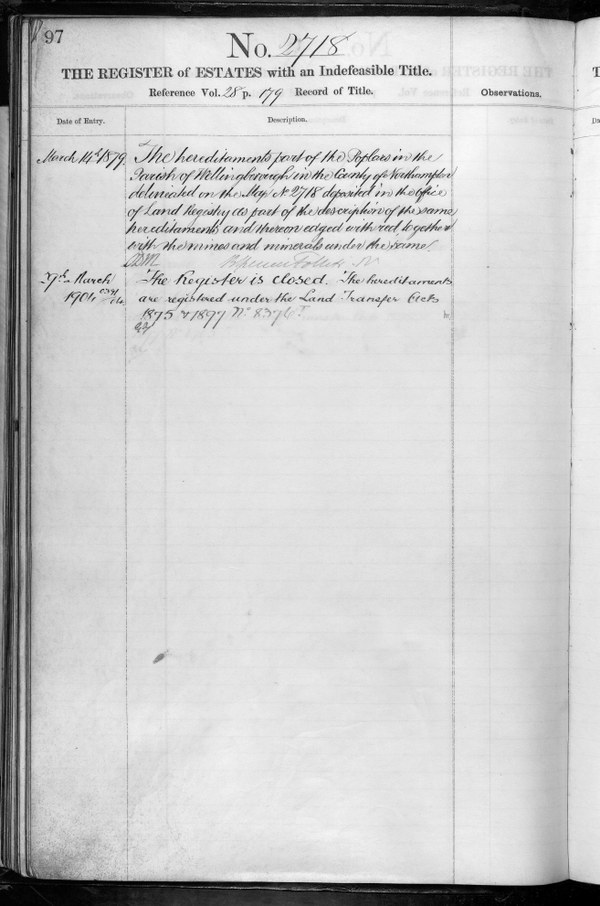 97
No. 2718
THE REGISTER of ESTATES with an Indefeasible Title.
Reference Vol. 28 p. 179 Record of Title.
Observations.
Date of Entry.
Description.
March 14th 1879
The hereditaments part of the Poplars in the
Parish of Wellingborough in the County of Northampton
delineated on the Map No 2718 deposited in the Office
of Land Registry as part of the description of the same
hereditaments and thereon edged with red together
with the mines and minerals under the same
March
1904
The Register is closed. The hereditaments
are registered under the Land Transfer Acts
1875 & 1897 No 8376